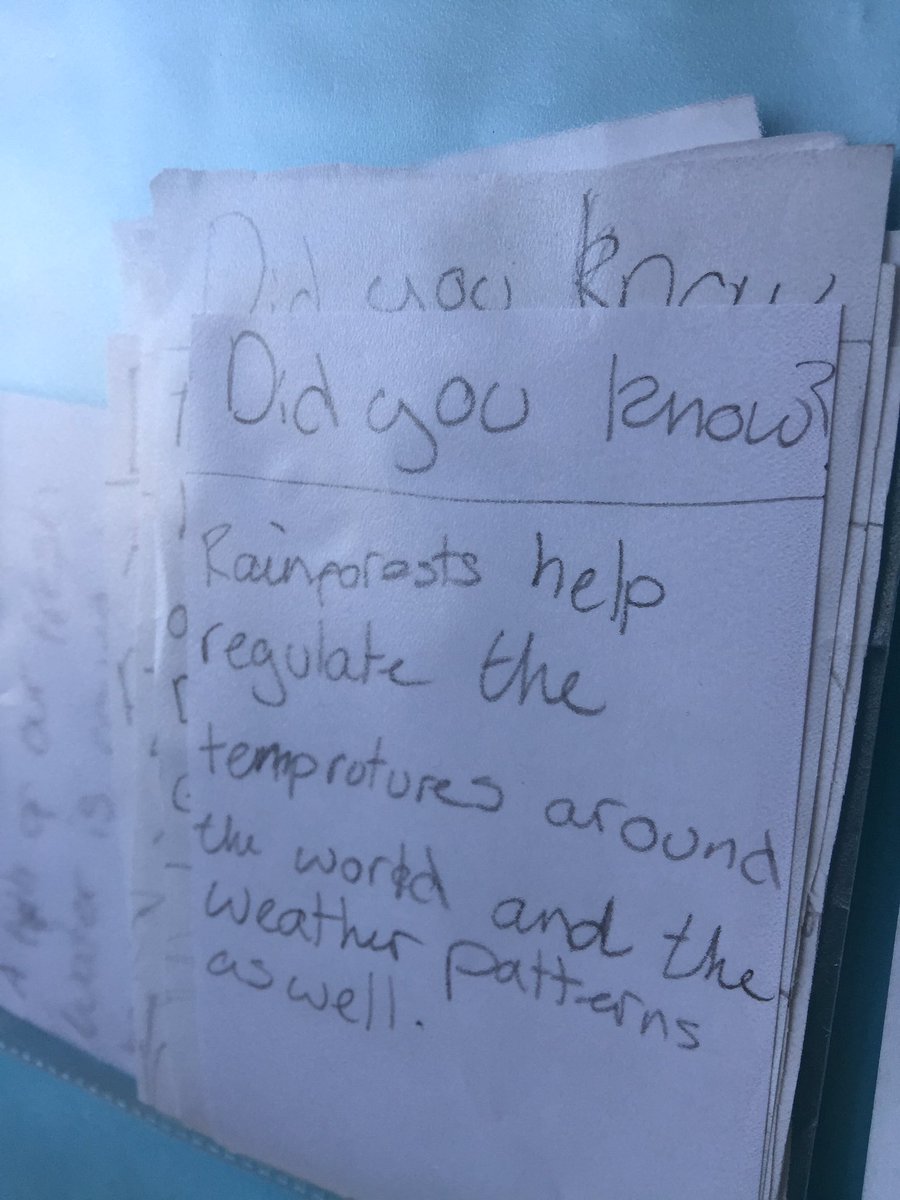 Did you know
Did you know?
Rainforests help
regulate the
temprotures around
the world and the
weather patterns
as well.